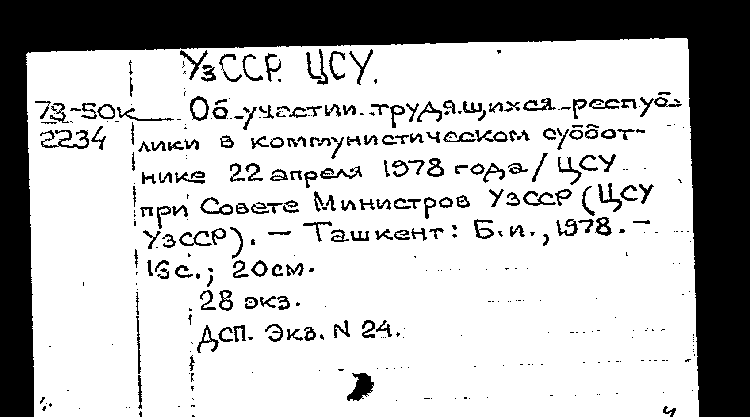 УзССР. ЦСУ.
78-50к Об участии трудящихся респуб-
2234 лики в коммунистическом суббот-
нике 22 апреля 1978 года / ЦСУ
при Совете Министров УзССР (ЦСУ
УзССР). – Ташкент: Б.и., 1978. –
16 с.; 20 см.
28 экз.
ДСП. Экз. N 24.